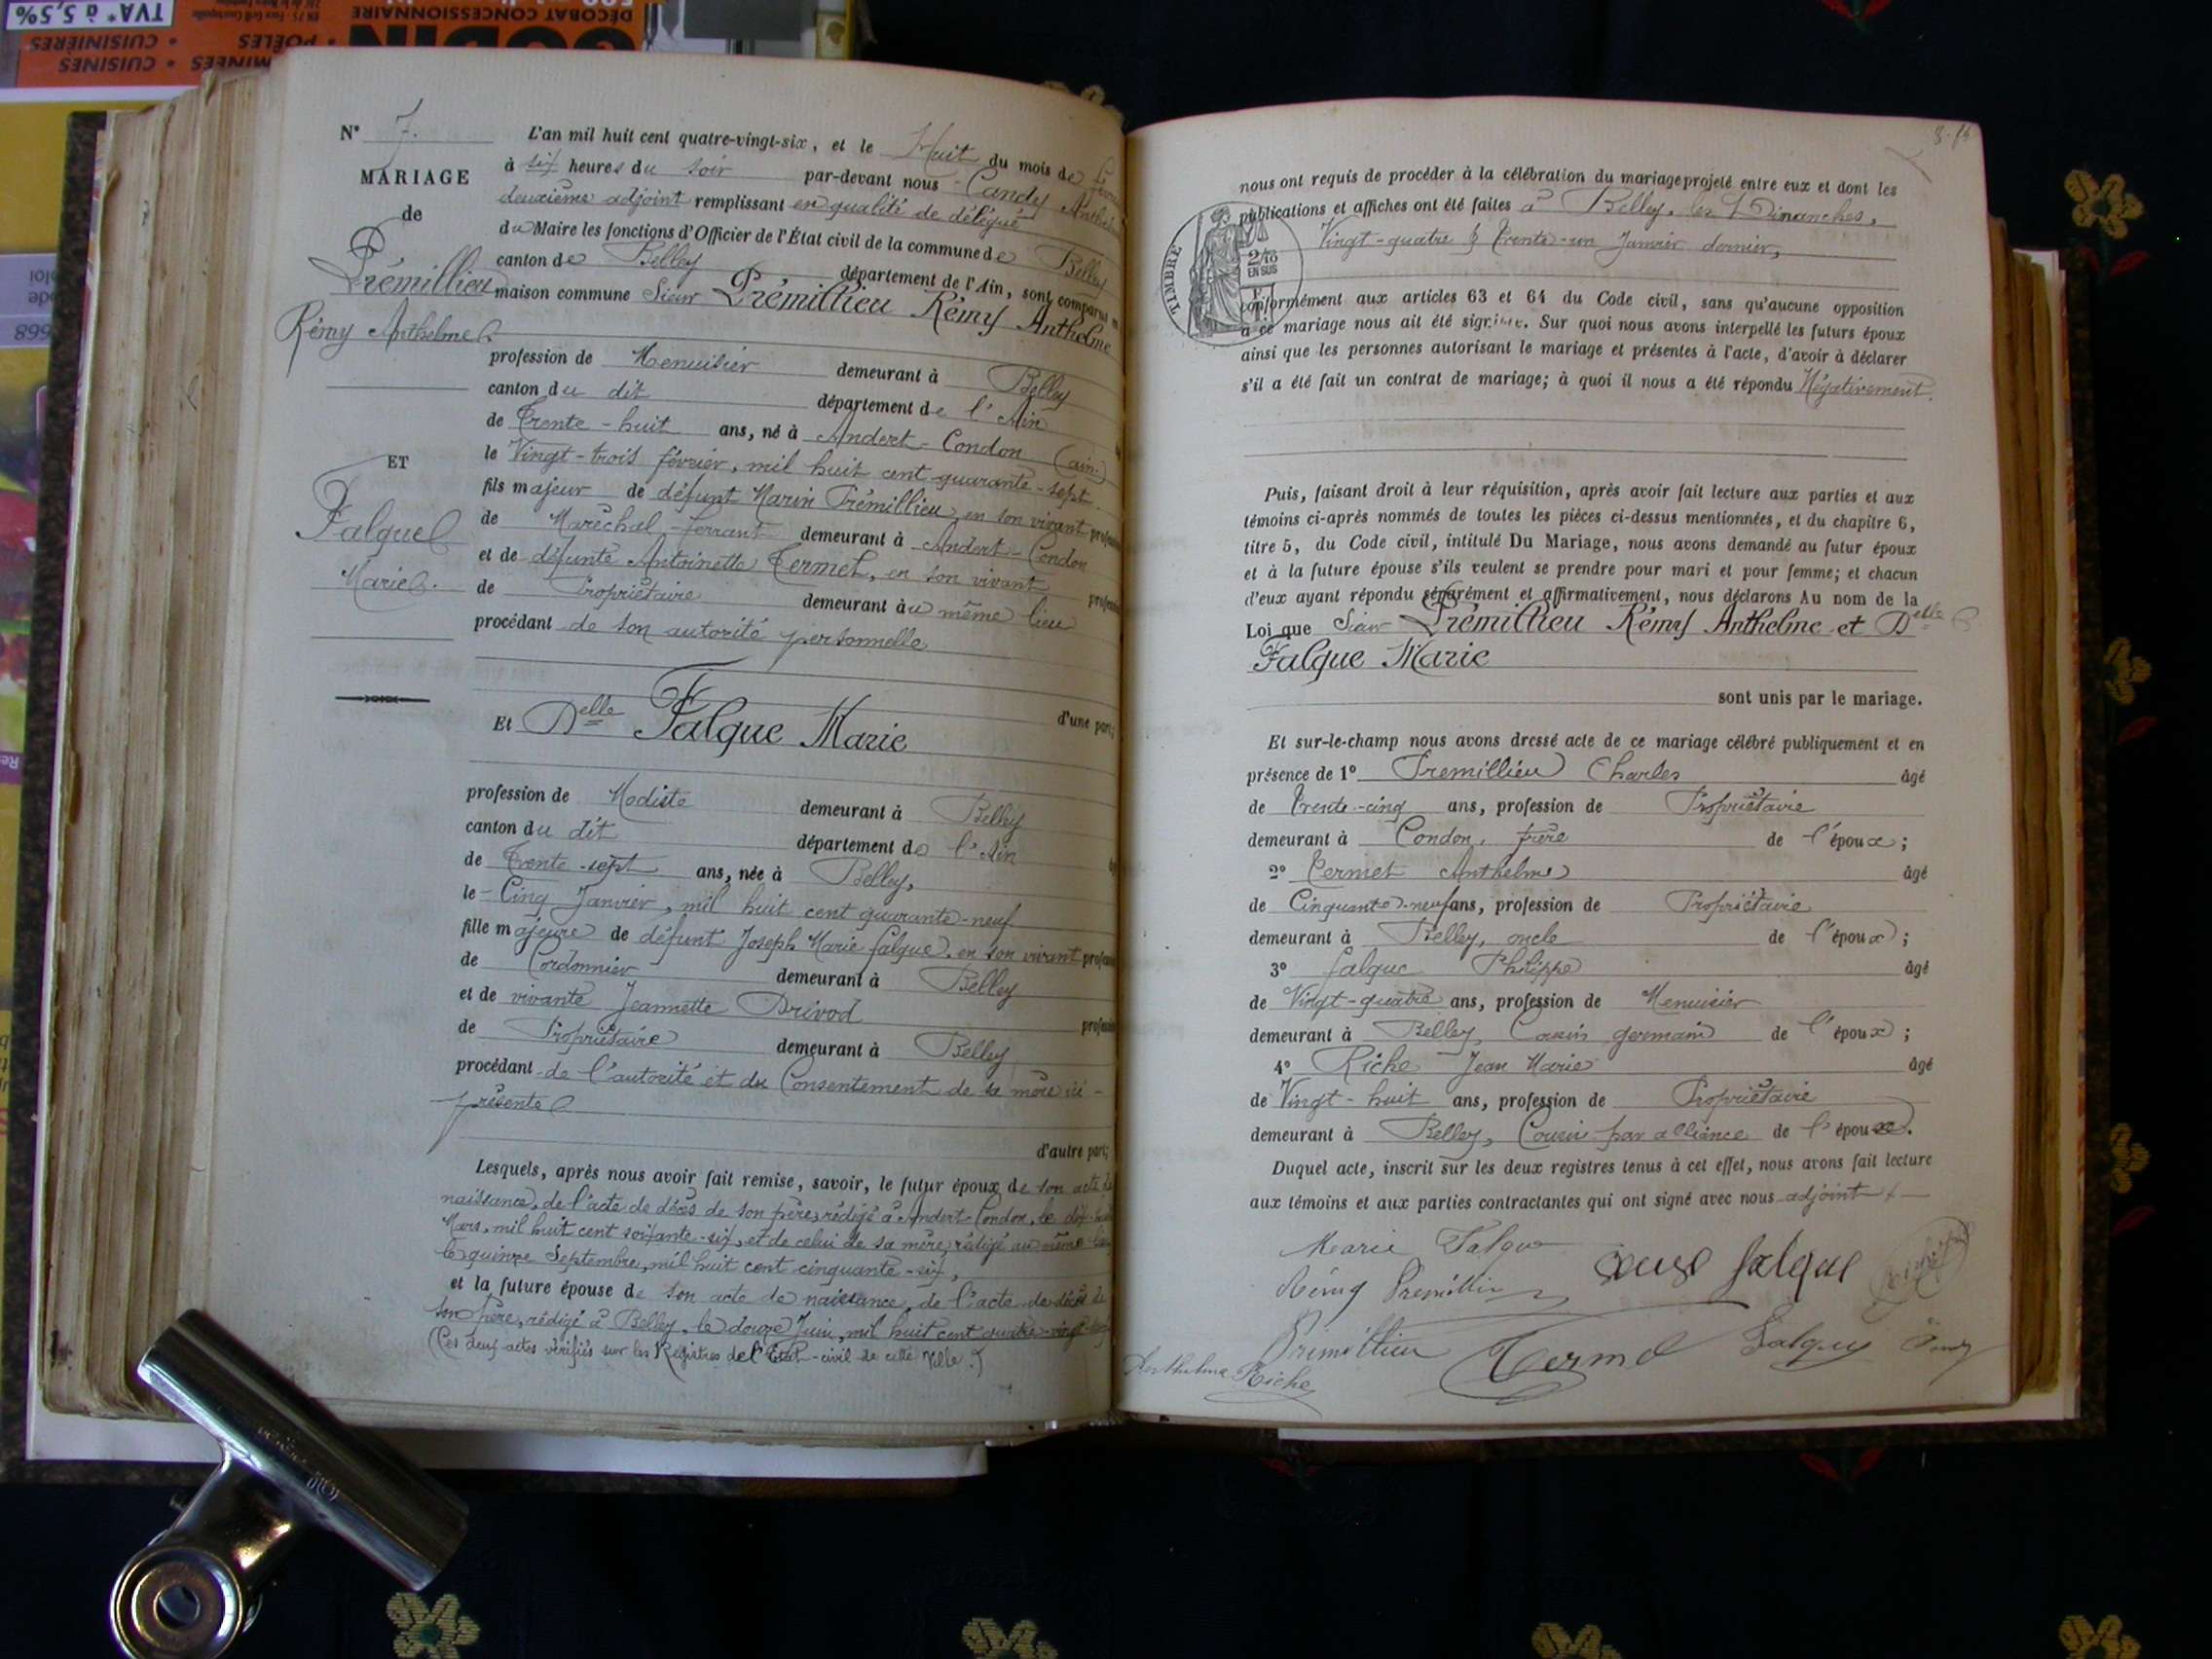 TVA* à 5,5%
CUISINES • CUISINIÈRES
POÊLES
GODIN
DÉCOBAT CONCESSIONNAIRE
N° 7.
MARIAGE
de
Prémillieu
Rémy Anthelme
ET
Falque
Marie
L'an mil huit cent quatre-vingt-six, et le Huit du mois de
à six heures du soir par-devant nous Candy
deuxième adjoint remplissant en qualité de délégué
du Maire les fonctions d'Officier de l'État civil de la commune de Belley
canton de Belley département de l'Ain, sont comparus en
maison commune Sieur Prémillieu Rémy Anthelme
profession de Menuisier demeurant à Belley
canton du dit département de l'Ain
de Trente-huit ans, né à Andert-Condon (ain)
le Vingt-trois février, mil huit cent quarante-sept
fils majeur de défunt Marin Prémillieu, en son vivant
de Maréchal-ferrant demeurant à Andert-Condon
et de défunte Antoinette Termet, en son vivant
de Propriétaire demeurant au même lieu
procédant de son autorité personnelle
d'une part;
Et Delle Falque Marie
profession de Modiste demeurant à Belley
canton du dit département de l'Ain
de Trente-sept ans, née à Belley,
le Cinq Janvier, mil huit cent quarante-neuf
fille majeure de défunt Joseph Marie falque, en son vivant
de Cordonnier demeurant à Belley
et de vivante Jeannette Drivod
de Propriétaire demeurant à Belley
procédant de l'autorité et du Consentement de sa mère ici-
présente
d'autre part;
Lesquels, après nous avoir fait remise, savoir, le futur époux de son acte de
naissance, de l'acte de décès de son père, rédigé à Andert-Condon, le
Mars, mil huit cent soixante-six, et de celui de sa mère, rédigé au même
le quinze Septembre, mil huit cent cinquante-six,
et la future épouse de son acte de naissance, de l'acte de décès de
son père, rédigé à Belley, le douze Juin, mil huit cent quatre-vingt
(Ces deux actes vérifiés sur les Registres de l'État-civil de cette ville.)
nous ont requis de procéder à la célébration du mariage projeté entre eux et dont les
publications et affiches ont été faites à Belley, les Dimanches,
Vingt-quatre & Trente-un Janvier dernier,
TIMBRE
2/10
EN SUS
conformément aux articles 63 et 64 du Code civil, sans qu'aucune opposition
à ce mariage nous ait été signifiée. Sur quoi nous avons interpellé les futurs époux
ainsi que les personnes autorisant le mariage et présentes à l'acte, d'avoir à déclarer
s'il a été fait un contrat de mariage; à quoi il nous a été répondu Négativement.
Puis, faisant droit à leur réquisition, après avoir fait lecture aux parties et aux
témoins ci-après nommés de toutes les pièces ci-dessus mentionnées, et du chapitre 6,
titre 5, du Code civil, intitulé Du Mariage, nous avons demandé au futur époux
et à la future épouse s'ils veulent se prendre pour mari et pour femme; et chacun
d'eux ayant répondu séparément et affirmativement, nous déclarons Au nom de la
Loi que Sieur Prémillieu Rémy Anthelme et Delle
Falque Marie
sont unis par le mariage.
Et sur-le-champ nous avons dressé acte de ce mariage célébré publiquement et en
présence de 1° Premillieu Charles âgé
de Trente-cinq ans, profession de Propriétaire
demeurant à Condon, frère de l'époux;
2° Termet Anthelme âgé
de Cinquante-neuf ans, profession de Propriétaire
demeurant à Belley, oncle de l'époux;
3° falque Philippe âgé
de Vingt-quatre ans, profession de Menuisier
demeurant à Belley, Cousin germain de l'époux;
4° Riche Jean Marie âgé
de Vingt-huit ans, profession de Propriétaire
demeurant à Belley, Cousin par alliance de l'époux.
Duquel acte, inscrit sur les deux registres tenus à cet effet, nous avons fait lecture
aux témoins et aux parties contractantes qui ont signé avec nous adjoint
Marie Falque falque
Rémy Premillieu
Prémillieu Termet Falque Candy
Anthelme Riche